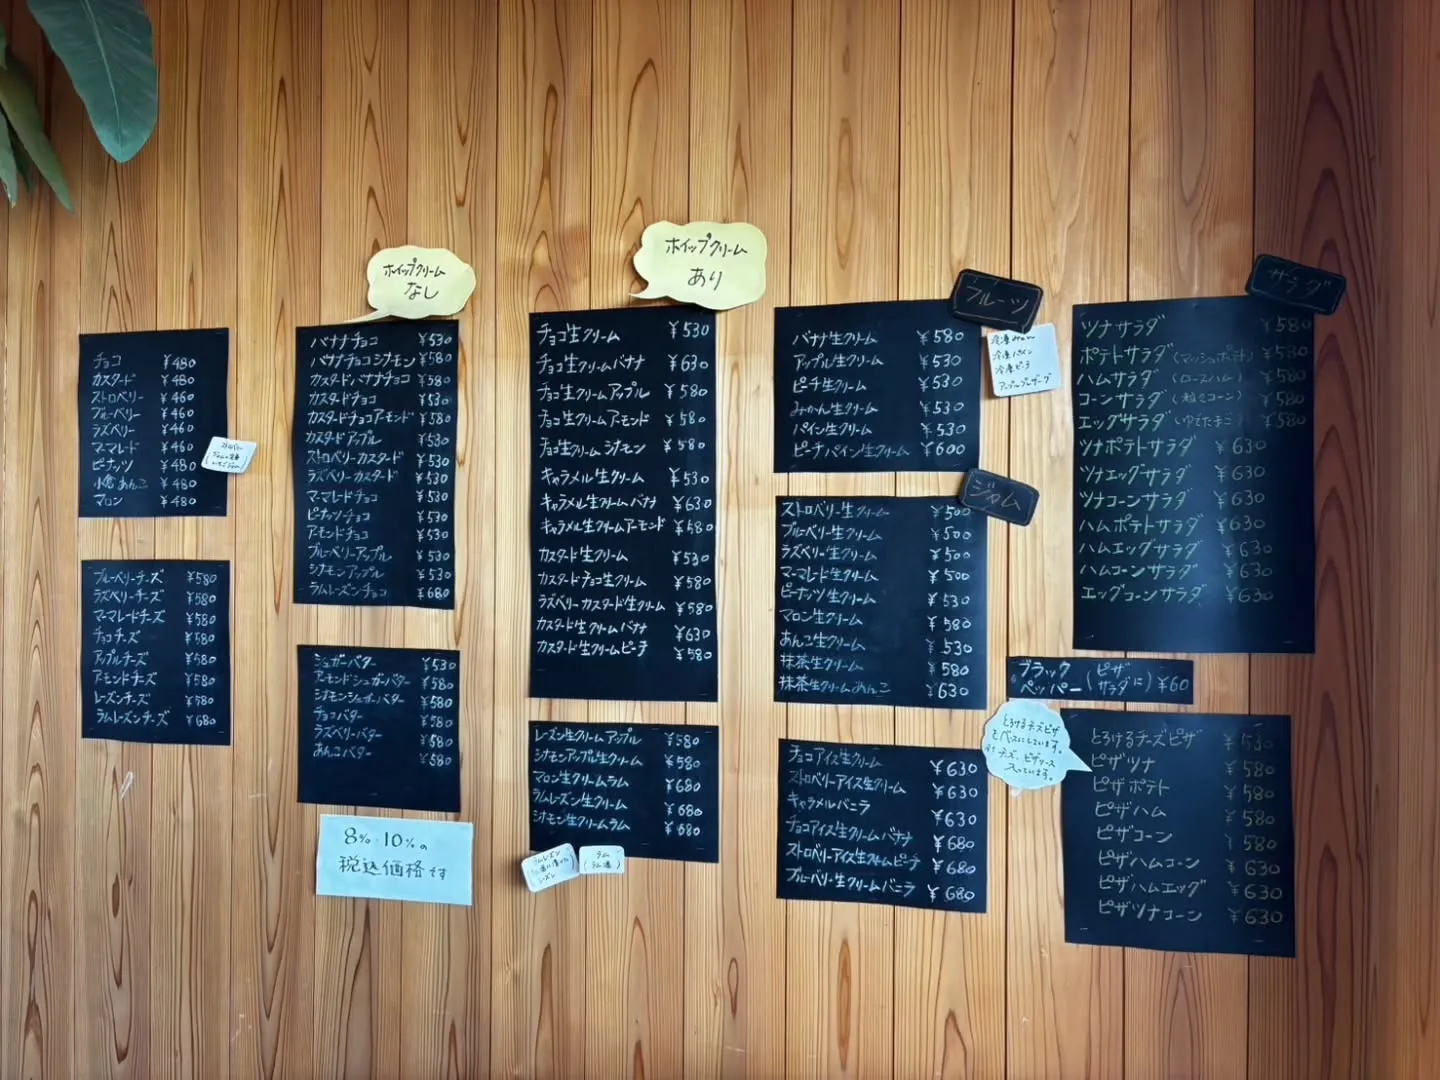 チョコ ¥480
カスタード ¥460
ストロベリー ¥460
ブルーベリー ¥460
ラズベリー ¥460
マーマレード ¥460
ピーナッツ ¥480
小倉あんこ ¥480
マロン ¥480
ブルーベリーチーズ ¥580
ラズベリーチーズ ¥580
マーマレードチーズ ¥580
チョコチーズ ¥580
アップルチーズ ¥580
アーモンドチーズ ¥580
レーズンチーズ ¥580
ラムレーズンチーズ ¥680
ホイップクリーム
なし
バナナチョコ ¥530
バナナチョコシナモン ¥580
カスタードバナナチョコ ¥580
カスタードチョコ ¥530
カスタードチョコアーモンド ¥580
カスタードアップル ¥530
ストロベリーカスタード ¥530
ラズベリーカスタード ¥530
マーマレードチョコ ¥530
ピーナッツチョコ ¥530
アーモンドチョコ ¥530
ブルーベリーアップル ¥530
シナモンアップル ¥530
ラムレーズンチョコ ¥680
シュガーバター ¥530
アーモンドシュガーバター ¥580
シナモンシュガーバター ¥580
チョコバター ¥580
ラズベリーバター ¥580
あんこバター ¥580
8%・10%の
税込価格です
ホイップクリーム
あり
チョコ生クリーム ¥530
チョコ生クリームバナナ ¥630
チョコ生クリームアップル ¥580
チョコ生クリームアーモンド ¥580
チョコ生クリームシナモン ¥580
キャラメル生クリーム ¥530
キャラメル生クリームバナナ ¥630
キャラメル生クリームアーモンド ¥580
カスタード生クリーム ¥530
カスタードチョコ生クリーム ¥580
ラズベリーカスタード生クリーム ¥580
カスタード生クリームバナナ ¥630
カスタード生クリームピーチ ¥580
レーズン生クリームアップル ¥580
シナモンアップル生クリーム ¥580
マロン生クリームラム ¥680
ラムレーズン生クリーム ¥680
シナモン生クリームラム ¥680
ラムレーズン
レーズン
ラム
(ラム酒)
フルーツ
冷凍みかん
冷凍パイン
冷凍ピーチ
アップルプレザーブ
バナナ生クリーム ¥580
アップル生クリーム ¥530
ピーチ生クリーム ¥530
みかん生クリーム ¥530
パイン生クリーム ¥530
ピーチパイン生クリーム ¥600
ジャム
ストロベリー生クリーム ¥500
ブルーベリー生クリーム ¥500
ラズベリー生クリーム ¥500
マーマレード生クリーム ¥500
ピーナッツ生クリーム ¥530
マロン生クリーム ¥580
あんこ生クリーム ¥530
抹茶生クリーム ¥580
抹茶生クリームあんこ ¥630
チョコアイス生クリーム ¥630
ストロベリーアイス生クリーム ¥630
キャラメルバニラ ¥630
チョコアイス生クリームバナナ ¥680
ストロベリーアイス生クリームピーチ ¥680
ブルーベリー生クリームバニラ ¥680
サラダ
ツナサラダ ¥580
ポテトサラダ(マッシュポテト) ¥530
ハムサラダ(ロースハム) ¥580
コーンサラダ(粒々コーン) ¥580
エッグサラダ(ゆでたチゴ) ¥580
ツナポテトサラダ ¥630
ツナエッグサラダ ¥630
ツナコーンサラダ ¥630
ハムポテトサラダ ¥630
ハムエッグサラダ ¥630
ハムコーンサラダ ¥630
エッグコーンサラダ ¥630
ブラック
ペッパー (ピザ サラダに) ¥60
とろけるチーズピザ
をベースにしています。
チーズ、ピザソース
入っています。
とろけるチーズピザ ¥530
ピザツナ ¥580
ピザポテト ¥580
ピザハム ¥580
ピザコーン ¥580
ピザハムコーン ¥630
ピザハムエッグ ¥630
ピザツナコーン ¥630